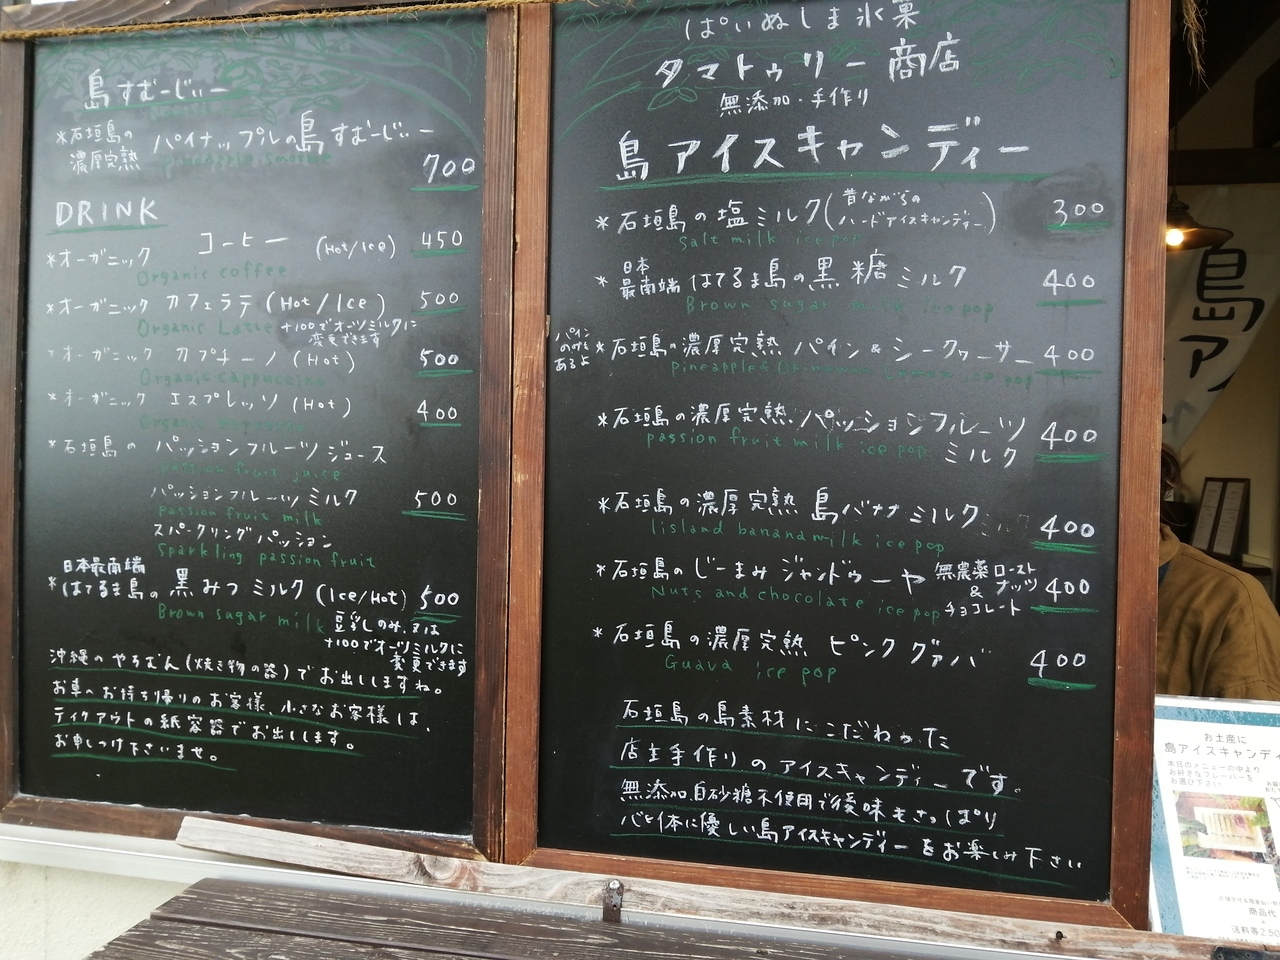 島すむーじぃー
*石垣島の
濃厚完熟
パイナップルの島すむーじぃー
pineapple smoothie
700
DRINK
*オーガニック コーヒー (Hot/Ice) 450
Organic coffee
*オーガニック カフェラテ (Hot/Ice) 500
Organic Latte
+100でオーツミルクに
変更できます
*オーガニック カプチーノ (Hot) 500
Organic cappuccino
*オーガニック エスプレッソ (Hot) 400
Organic espresso
*石垣島の パッションフルーツジュース
passion fruit juice
パッションフルーツミルク 500
passion fruit milk
スパークリングパッション
Sparkling passion fruit
日本最南端
*はてるま島の 黒みつミルク (Ice/Hot) 500
Brown sugar milk
豆乳しのみ、又は
+100でオーツミルクに
変更できます
沖縄のやちむん(焼き物の器)でお出ししますね。
お車へお持ち帰りのお客様、小さなお客様は、
テイクアウトの紙容器でお出しします。
お申しつけ下さいませ。
ぱいぬしま氷菓
タマトゥリー商店
無添加・手作り
島アイスキャンディー
*石垣島の塩ミルク(昔ながらの
ハードアイスキャンディー) 300
Salt milk ice pop
日本
*最南端 はてるま島の黒糖ミルク 400
Brown sugar milk ice pop
パイン
のみも
あるよ
*石垣島の濃厚完熟 パイン&シークヮーサー 400
pineapple & Okinawa ice pop
*石垣島の濃厚完熟 パッションフルーツ
ミルク 400
passion fruit milk ice pop
*石垣島の濃厚完熟 島バナナミルク 400
Iisland banana milk ice pop
*石垣島の じーまみ ジャンドゥーヤ 400
無農薬ロースト
ナッツ
&
チョコレート
Nuts and chocolate ice pop
*石垣島の濃厚完熟 ピンクグァバ 400
Guava ice pop
石垣島の島素材にこだわった
店主手作りのアイスキャンディーです。
無添加、白砂糖不使用で後味もさっぱり
心と体に優しい島アイスキャンディーをお楽しみ下さい
島ア
お土産に
島アイスキャンディ
本日のメニューの中より
お好きなフレーバーを
お選び下さい
商品代
+
送料等2,50